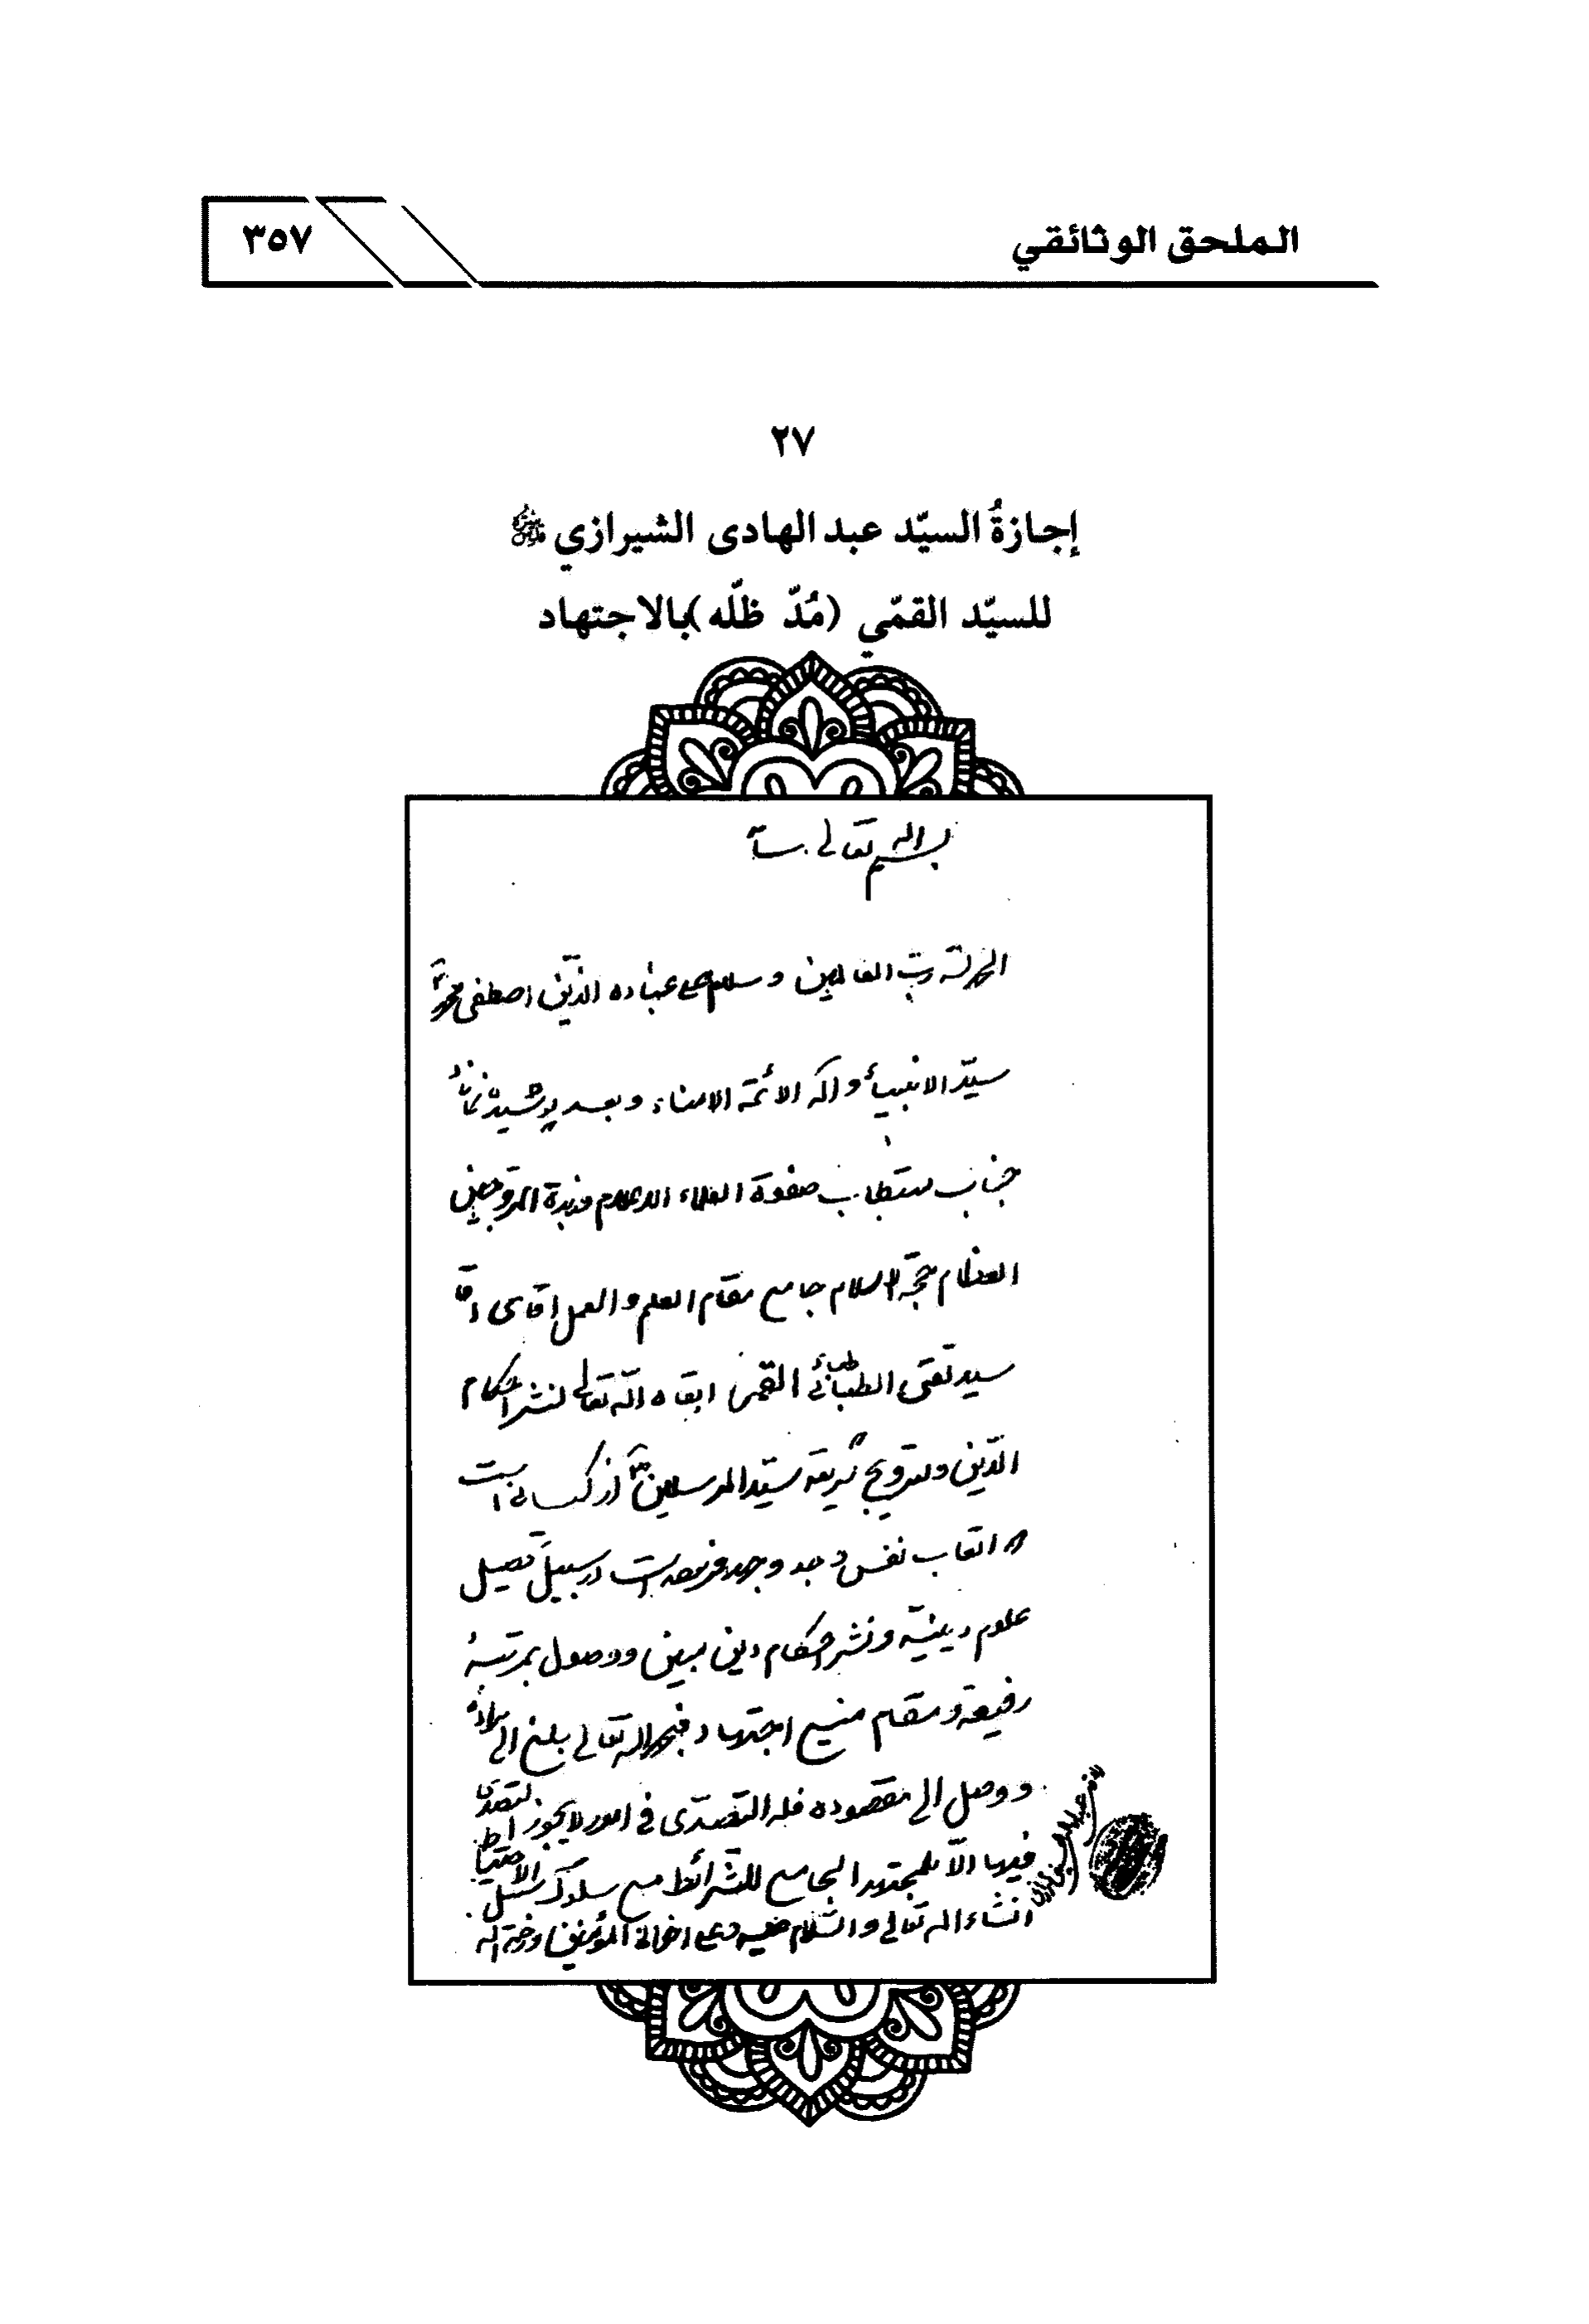 الملحق الوثائقي
٣٥٧
٢٧
إجازةُ السيّد عبد الهادى الشيرازي
للسيّد القمّي (مُدّ ظلّه) بالاجتهاد
بسم الله تعالى
الحمد لله ربّ العالمين وسلام على عباده الذين اصطفى محمد
سيّد الانبياء وآله الائمة الامناء وبعد پوشیده نماند
جناب مستطاب صفوة العلماء الاعلام وزبدة المروّجين
العظام حجّة الاسلام جامع مقام العلم والعمل اقاى اقا
سيد تقى الطباطبائي القمى ابقاه الله تعالى لنشر احكام
الدّين وترويج شريعة سيّد المرسلين از كسانى است
كه اتعاب نفس وجد وجهد فرموده است در سبيل تحصيل
علوم دينيّه ونشر احكام دين مبين ووصول بمرتبۀ
رفيعه ومقام منيع اجتهاد فبحمد الله تعالى بلغ الى مراده
ووصل الى مقصوده فله التصدّى في امور لا يجوز التصدّى
فيها الّا للمجتهد الجامع للشّرائط مع سلوك سبيل الاحتياط
انشاء الله تعالى والسّلام عليه وعلى اخواننا المؤمنين ورحمة الله